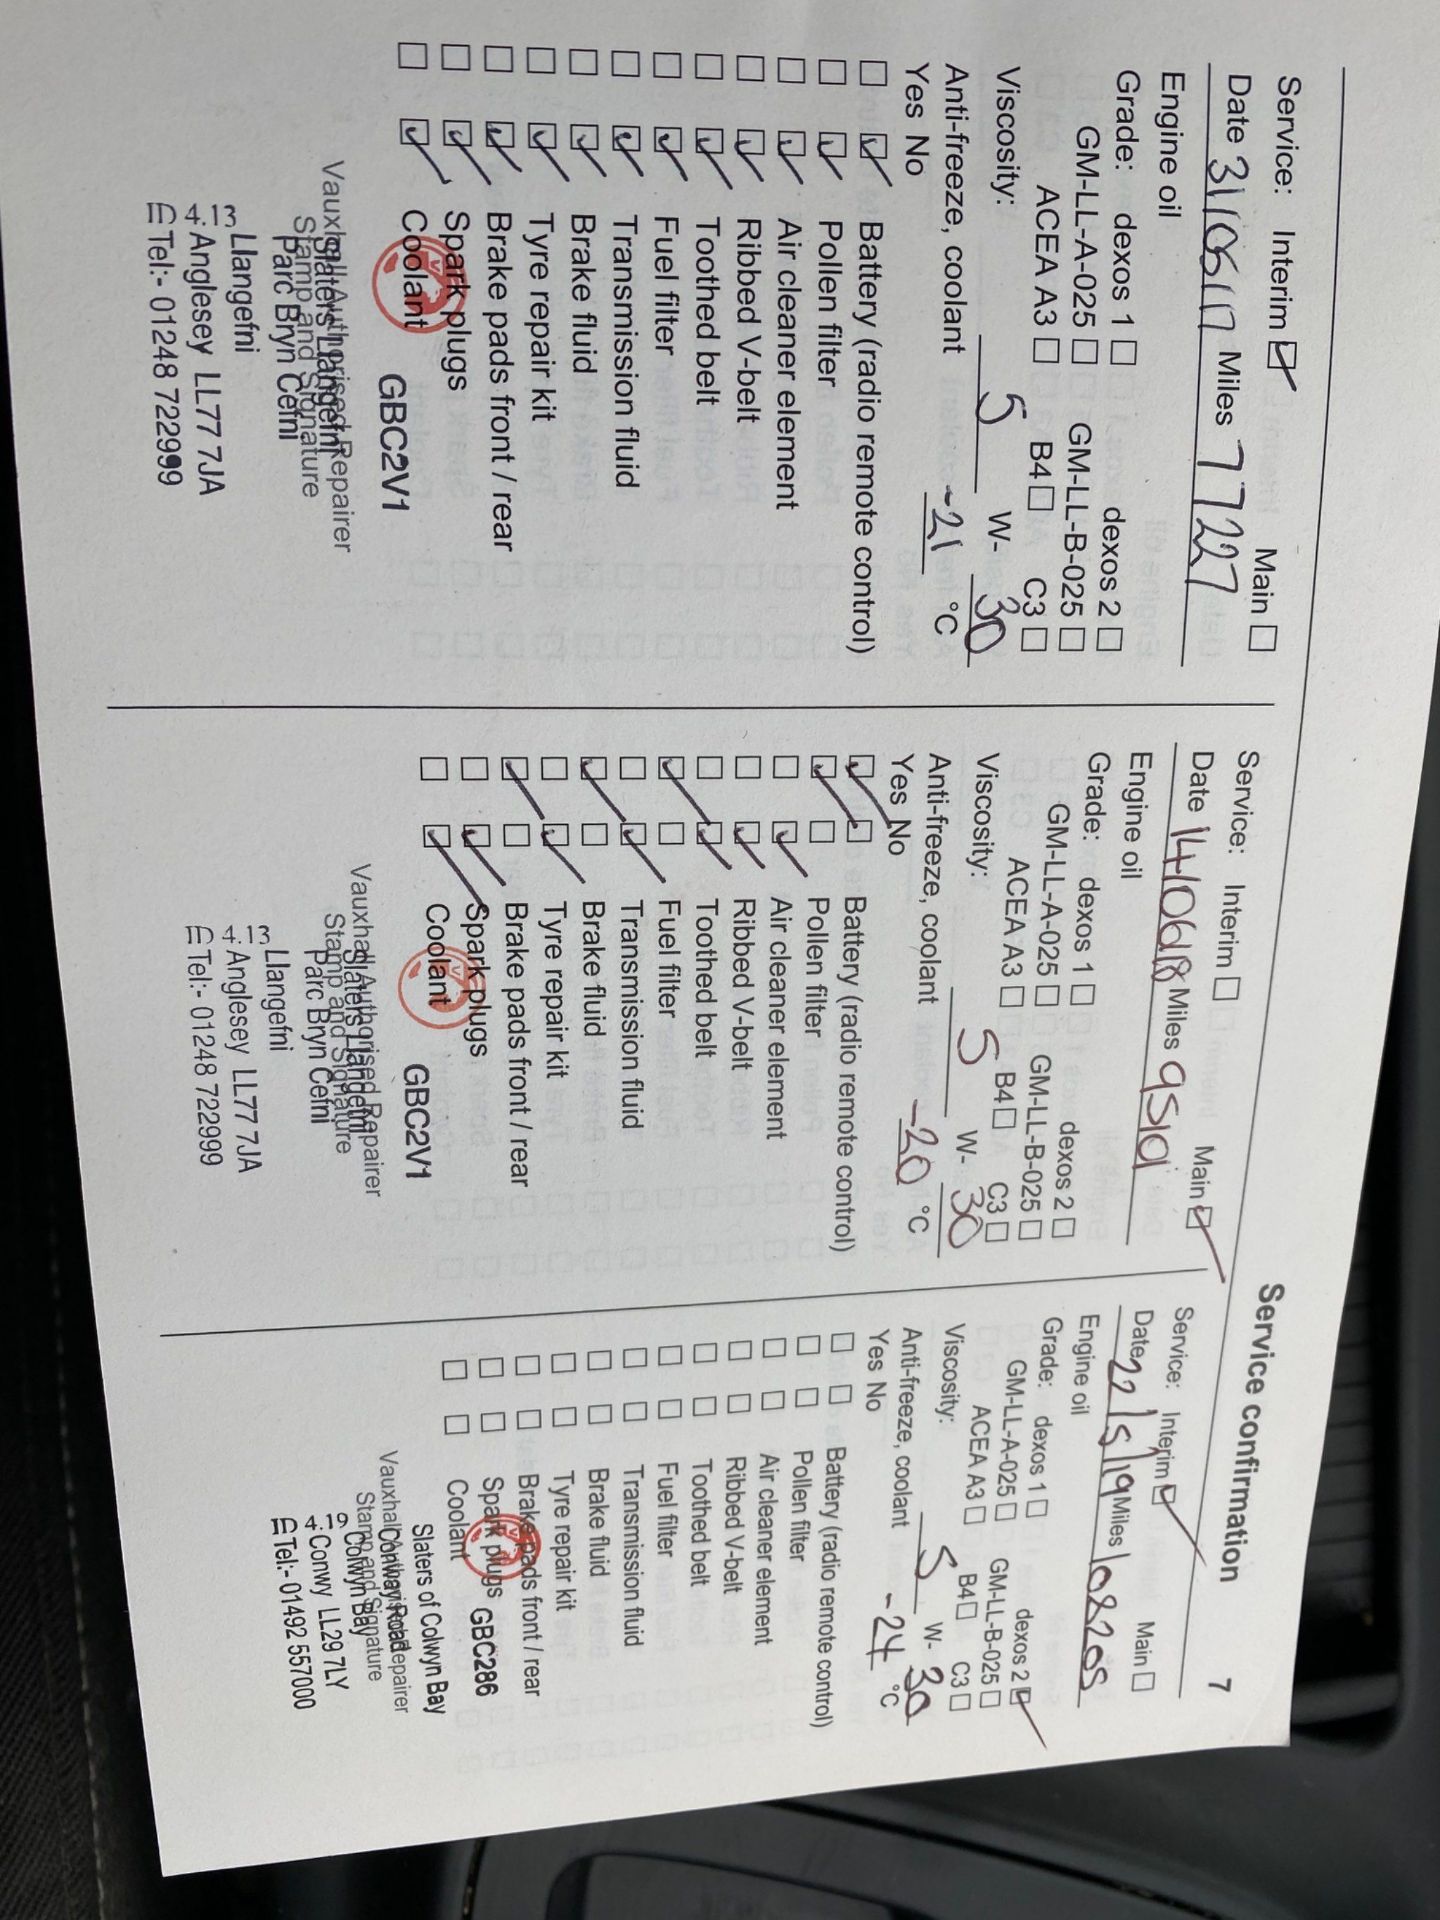 Service confirmation
7
Service: Interim ☑ Main ☐
Date 31/05/17 Miles 7727
Engine oil
Grade: dexos 1 ☐ dexos 2 ☐
GM-LL-A-025 ☐ GM-LL-B-025 ☐
ACEA A3 ☐ B4 ☐ C3 ☐
Viscosity: 5 W- 30
Anti-freeze, coolant -21 °C
Yes No
☐ ☑ Battery (radio remote control)
☐ ☑ Pollen filter
☐ ☑ Air cleaner element
☐ ☑ Ribbed V-belt
☐ ☑ Toothed belt
☐ ☑ Fuel filter
☐ ☑ Transmission fluid
☐ ☑ Brake fluid
☐ ☑ Tyre repair kit
☐ ☑ Brake pads front / rear
☐ ☑ Spark plugs
☐ ☑ Coolant
GBC2V1
Vauxhall Authorised Repairer
Slaters Llangefni
Stamp and Signature
Parc Bryn Cefni
Llangefni
Anglesey LL77 7JA
Tel:- 01248 722999
Service: Interim ☐ Main ☑
Date 14/06/18 Miles 9519
Engine oil
Grade: dexos 1 ☐ dexos 2 ☐
GM-LL-A-025 ☐ GM-LL-B-025 ☐
ACEA A3 ☐ B4 ☐ C3 ☐
Viscosity: 5 W- 30
Anti-freeze, coolant -20 °C
Yes No
☑ ☐ Battery (radio remote control)
☑ ☐ Pollen filter
☐ ☑ Air cleaner element
☐ ☑ Ribbed V-belt
☐ ☑ Toothed belt
☑ ☐ Fuel filter
☐ ☑ Transmission fluid
☑ ☐ Brake fluid
☐ ☑ Tyre repair kit
☑ ☐ Brake pads front / rear
☐ ☑ Spark plugs
☐ ☑ Coolant
GBC2V1
Vauxhall Authorised Repairer
Slaters Llangefni
Stamp and Signature
Parc Bryn Cefni
Llangefni
Anglesey LL77 7JA
Tel:- 01248 722999
Service: Interim ☑ Main ☐
Date 22/5/19 Miles 10205
Engine oil
Grade: dexos 1 ☐ dexos 2 ☑
GM-LL-A-025 ☐ GM-LL-B-025 ☐
ACEA A3 ☐ B4 ☐ C3 ☐
Viscosity: 5 W- 30
Anti-freeze, coolant -24 °C
Yes No
☐ ☐ Battery (radio remote control)
☐ ☐ Pollen filter
☐ ☐ Air cleaner element
☐ ☐ Ribbed V-belt
☐ ☐ Toothed belt
☐ ☐ Fuel filter
☐ ☐ Transmission fluid
☐ ☐ Brake fluid
☐ ☐ Tyre repair kit
☐ ☐ Brake pads front / rear
☐ ☐ Spark plugs GBC286
☐ ☐ Coolant
Slaters of Colwyn Bay
Vauxhall Authorised Repairer
Conway Road
Stamp and Signature
Colwyn Bay
Conwy LL29 7LY
Tel:- 01492 557000